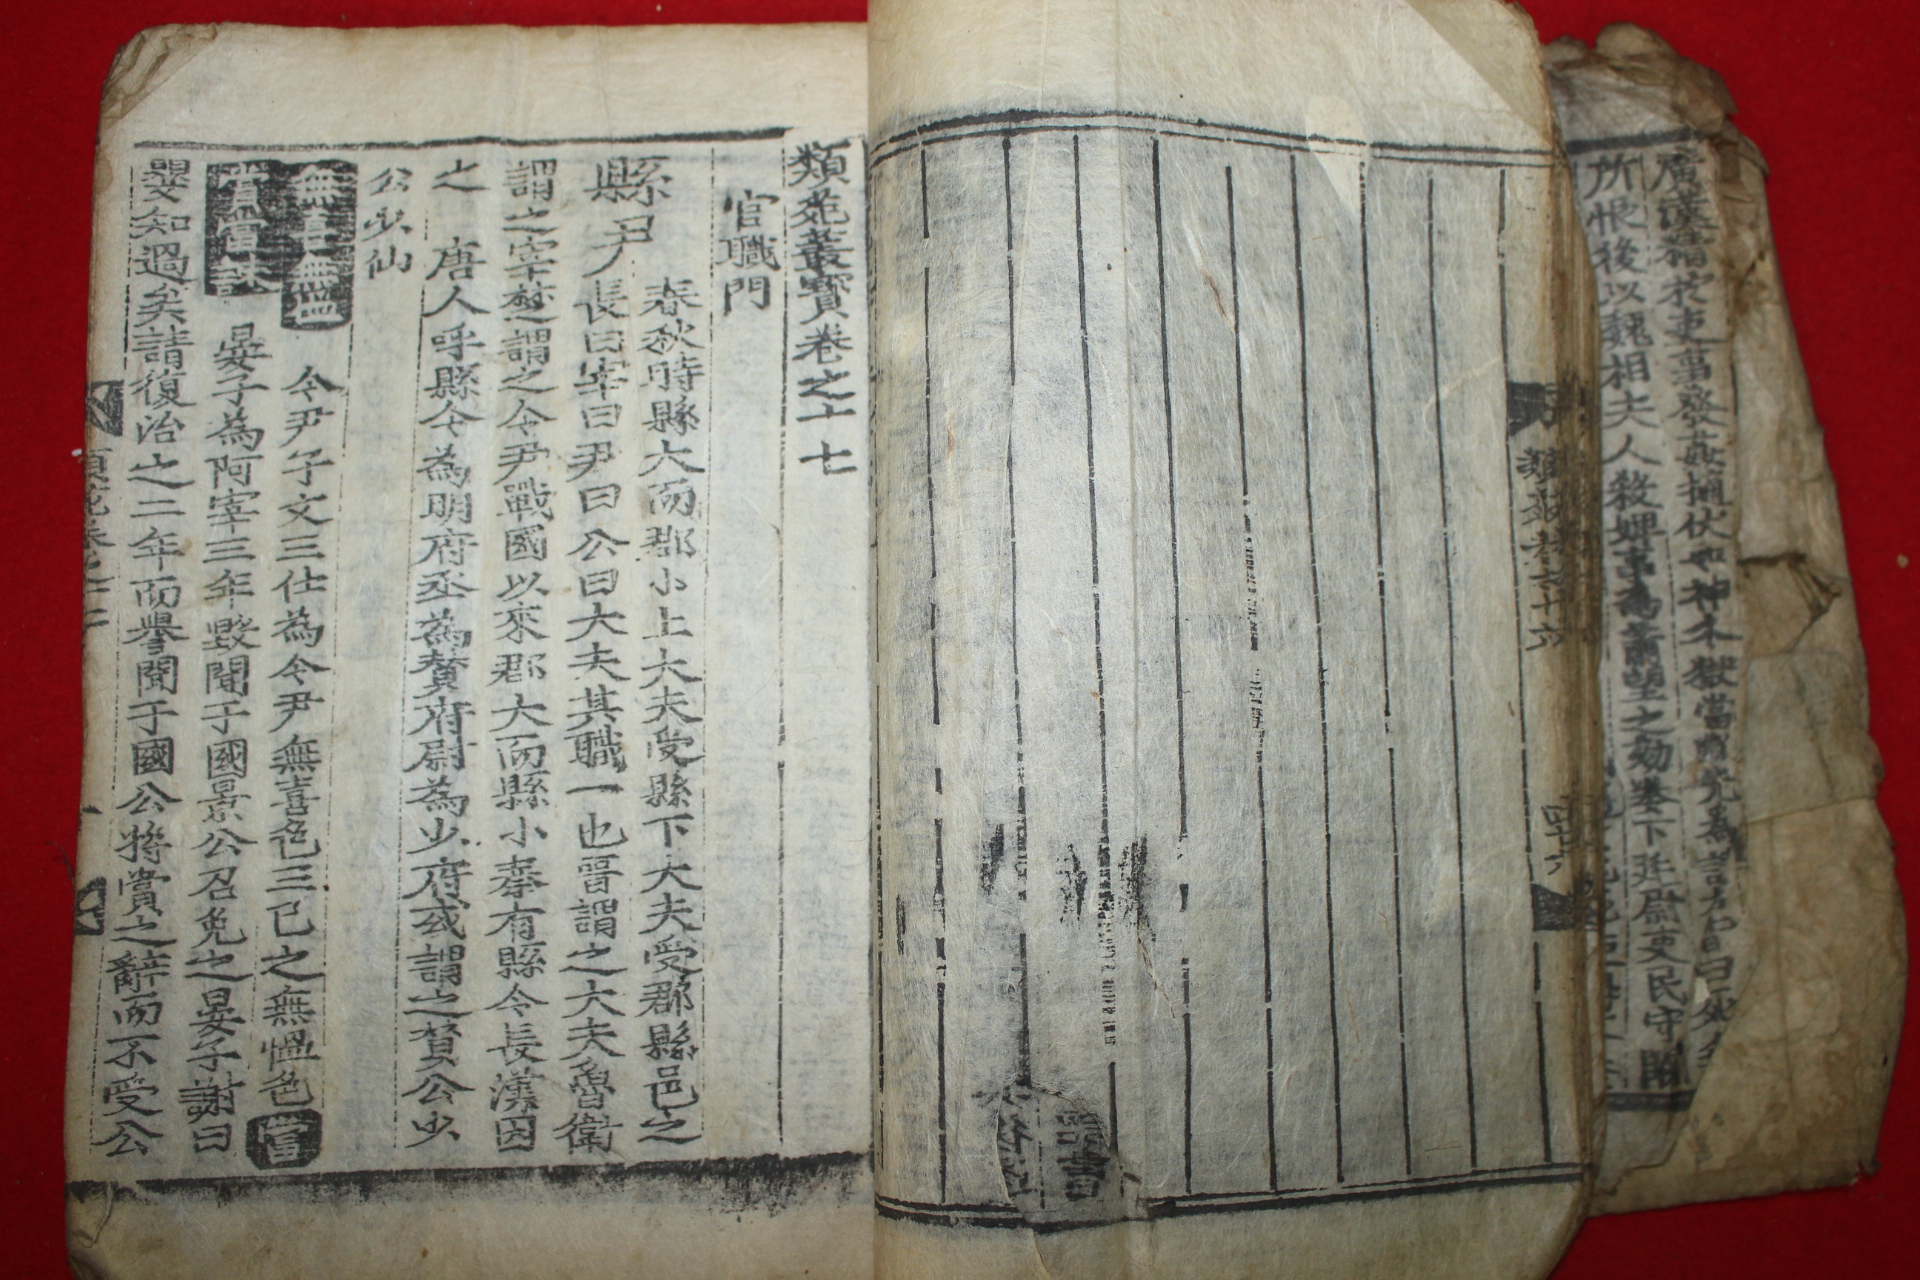 廣漢
所恨後以魏相夫人殺婢事為蕭望之劾奏下廷尉吏民守闕
類苑卷之十六
四十六
類苑叢寶卷之十七
官職門
縣尹
春秋時縣大而郡小上大夫受縣下大夫受郡縣邑之
長曰宰曰尹曰公曰大夫其職一也晋謂之大夫魯衛
謂之宰楚謂之令尹戰國以來郡大而縣小秦有縣令長漢因
之 唐人呼縣令為明府丞為賛府尉為少府或謂之賛公少
公少仙
無喜無慍 令尹子文三仕為令尹無喜色三已之無慍色 當
賞當誅 晏子為阿宰三年毀聞于國景公召免之晏子謝曰
嬰知過矣請復治之三年而譽聞于國公將賞之辭而不受公